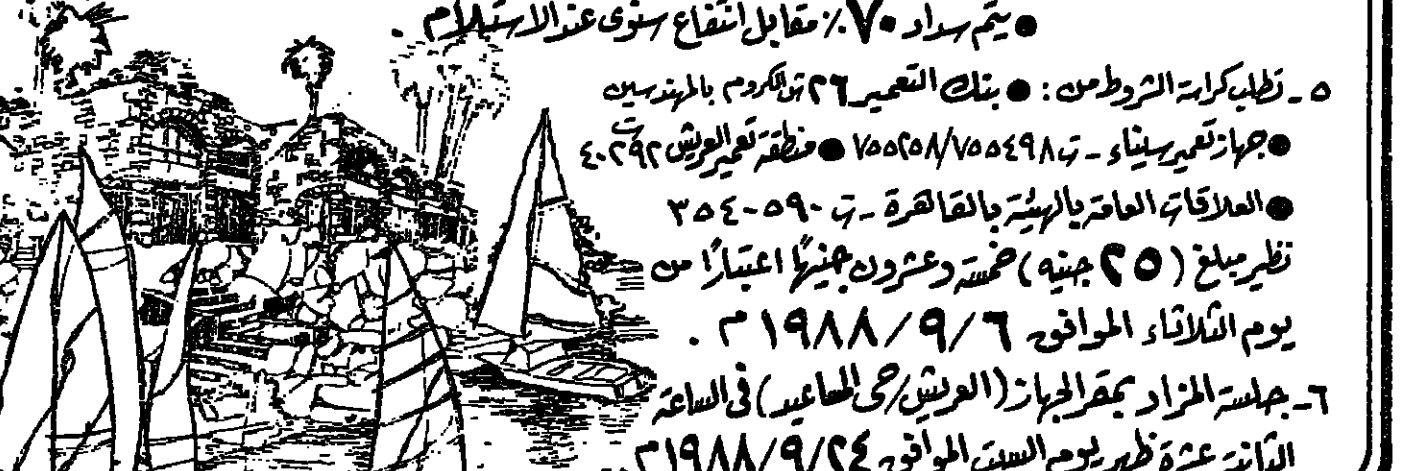 ● يتم سداد ٧٠٪ مقابل انتفاع سنوى عند الاستلام .
٥ - تطلب كراسة الشروط من : ● بنك التعمير ٢٦ ش الكروم بالمهندسين
● جهاز تعمير سيناء - ت ٧٥٥٢٥٨/٧٥٥٤٩٨ ● منطقة تعمير العريش ت ٤٠٢٩٢
● العلاقات العامة بالهيئة بالقاهرة - ت ٣٥٤٠٥٩٠
نظير مبلغ (٢٥ جنيه) خمسة وعشرون جنيهًا اعتبارًا من
يوم الثلاثاء الموافق ١٩٨٨/٩/٦ م .
٦ - جلسة المزاد بمقر الجهاز (العريش/حى المساعيد) فى الساعة
الثانية عشرة ظهر يوم السبت الموافق ١٩٨٨/٩/٢٤ م .